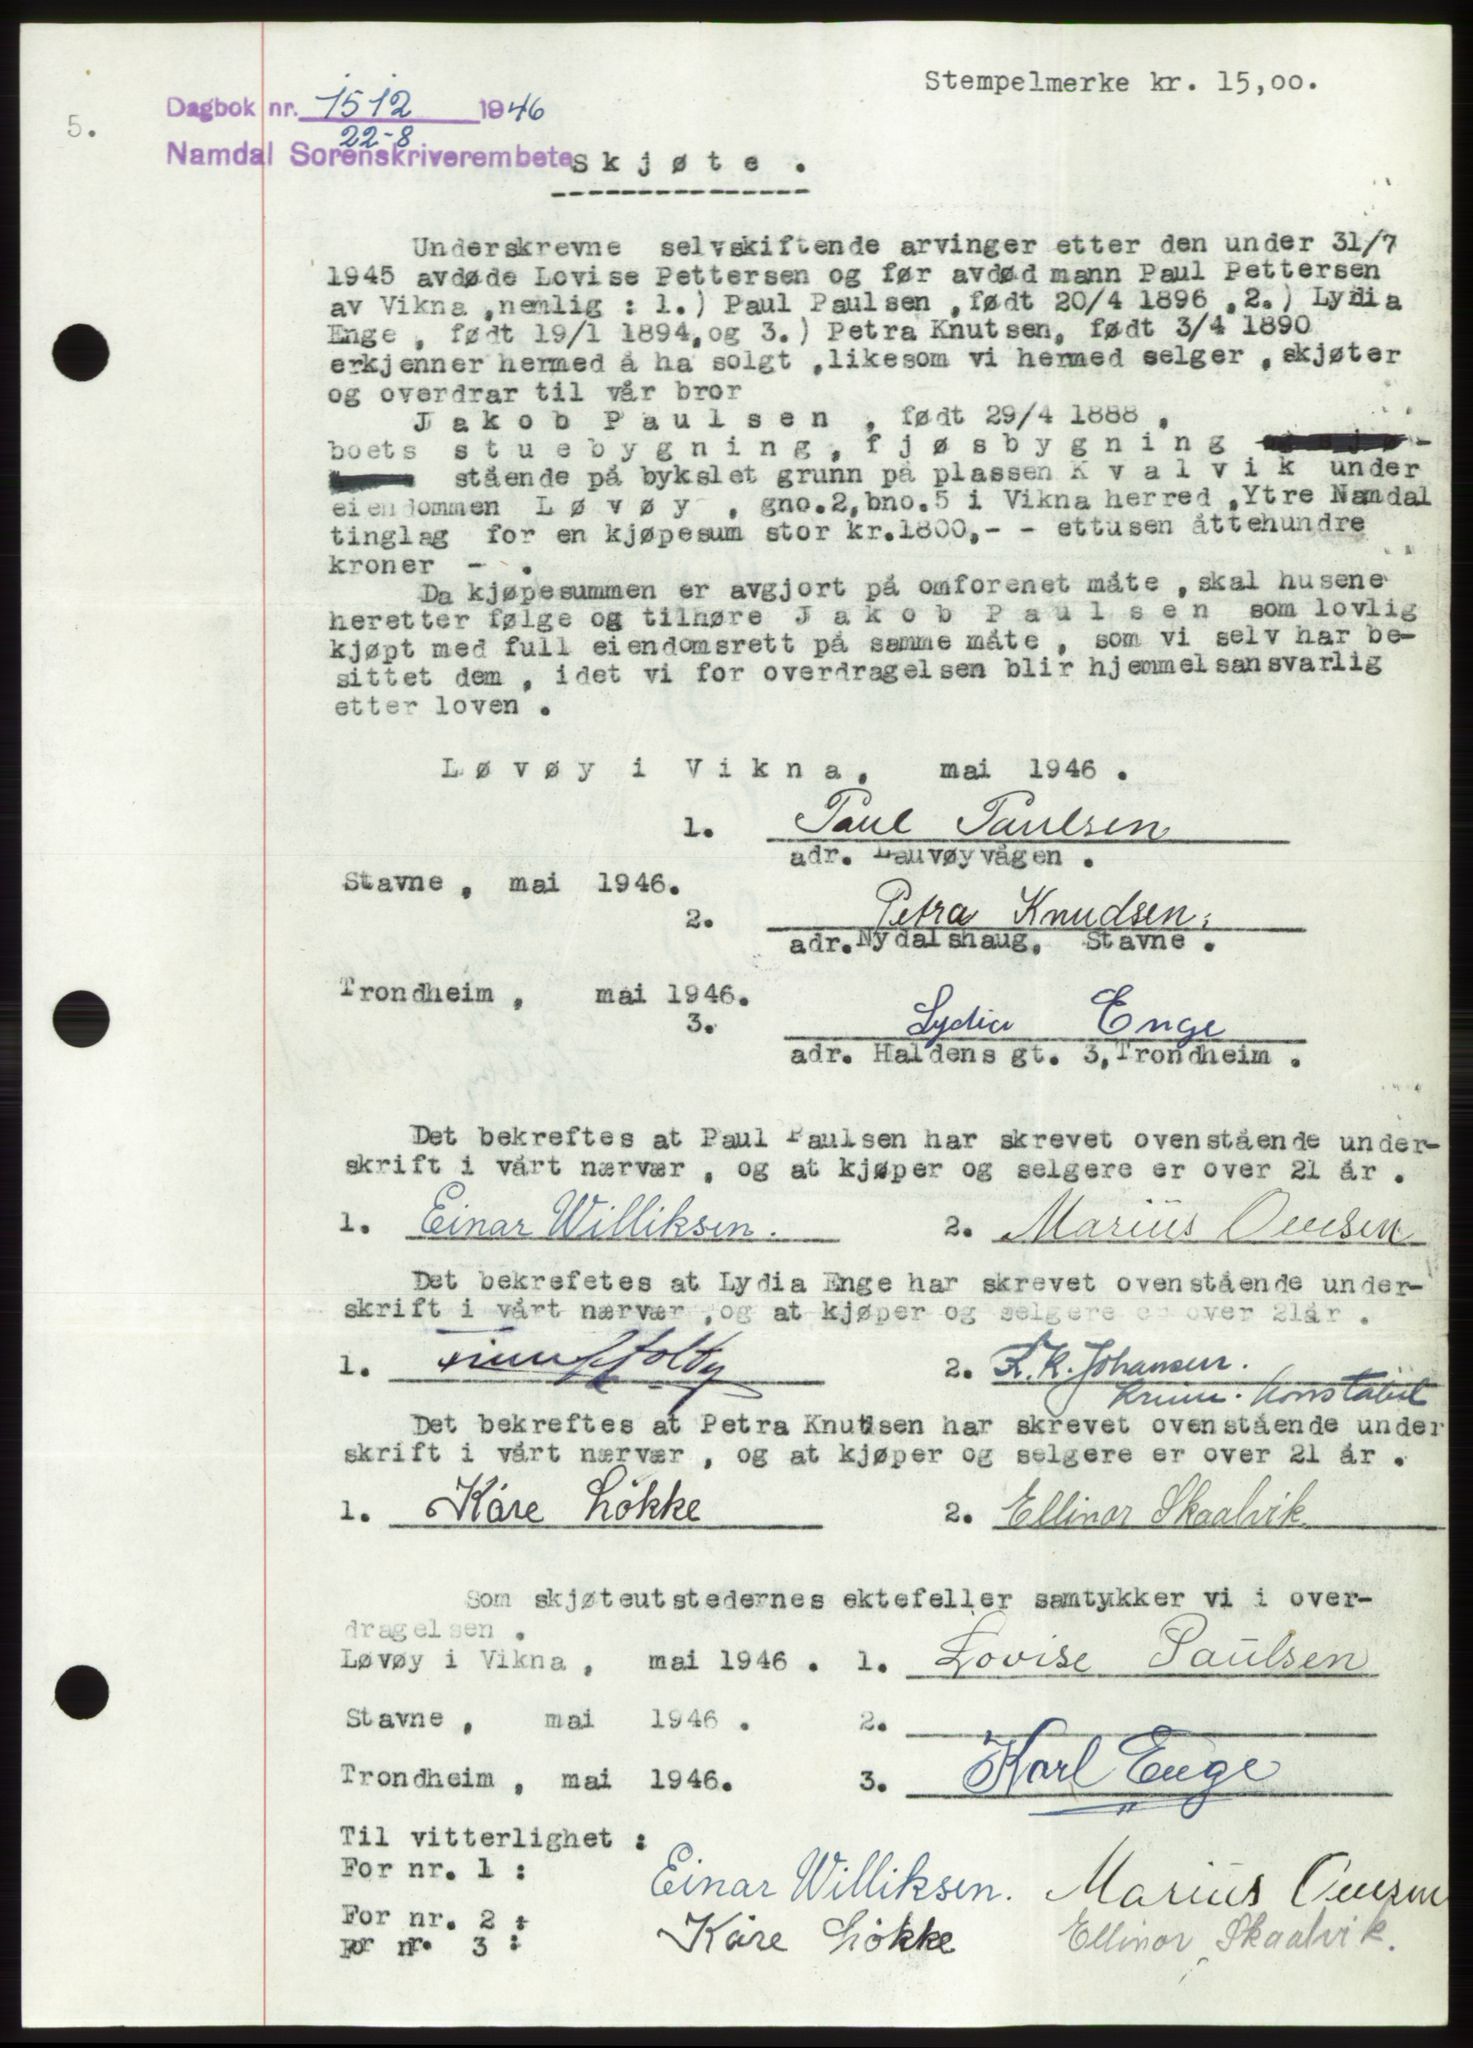 Stempelmerke kr. 15,00.
Dagbok nr. 1512 1946
5.
22-8
Namdal Sorenskriverembete
S k j ø t e .
Underskrevne selvskiftende arvinger etter den under 31/7
1945 avdøde Lovise Pettersen og før avdød mann Paul Pettersen
av Vikna ,nemlig : 1.) Paul Paulsen , født 20/4 1896 ,2.) Lydia
Enge , født 19/1 1894, og 3.) Petra Knutsen, født 3/4 1890
erkjenner hermed å ha solgt ,likesom vi hermed selger , skjøter
og overdrar til vår bror
J a k o b P a u l s e n , født 29/4 1888 ,
boets s t u e b y g n i n g , f j ø s b y g n i n g og s j ø -
stående på bykslet grunn på plassen K v a l v i k under
eiendommen L ø v ø y , gno.2, bno.5 i Vikna herred ,Ytre Namdal
tinglag for en kjøpesum stor kr.1800,- - ettusen åttehundre
kroner - .
Da kjøpesummen er avgjort på omforenet måte , skal husene
heretter følge og tilhøre J a k o b P a u l s e n som lovlig
kjøpt med full eiendomsrett på samme måte , som vi selv har be-
sittet dem , idet vi for overdragelsen blir hjemmelsansvarlig
etter loven .
L ø v ø y i V i k n a , mai 1946 .
1. Paul Paulsen
adr. Lauvøyvågen .
Stavne , mai 1946.
2. Petra Knudsen.
adr. Nydalshaug, Stavne .
Trondheim , mai 1946.
3. Lydia Enge
adr. Haldens gt. 3, Trondheim .
Det bekreftes at Paul Paulsen har skrevet ovenstående under-
skrift i vårt nærvær , og at kjøper og selgere er over 21 år .
1. Einar Williksen. 2. Marius Ovesen
Det bekrefetes at Lydia Enge har skrevet ovenstående under-
skrift i vårt nærvær , og at kjøper og selgere er over 21år .
1. 2. K. Johansen.
krim. konstabel
Det bekreftes at Petra Knutsen har skrevet ovenstående under
skrift i vårt nærvær , og at kjøper og selgere er over 21 år .
1. Kåre Løkke 2. Ellinor Skaalvik.
Som skjøteutstedernes ektefeller samtykker vi i over-
dragelsen .
Løvøy i Vikna , mai 1946 . 1. Lovise Paulsen
Stavne , mai 1946 . 2.
Trondheim , mai 1946. 3. Karl Enge
Til vitterlighet :
For nr. 1 : Einar Williksen. Marius Ovesen
For nr. 2 : Kåre Løkke Ellinor Skaalvik.
For nr. 3 :